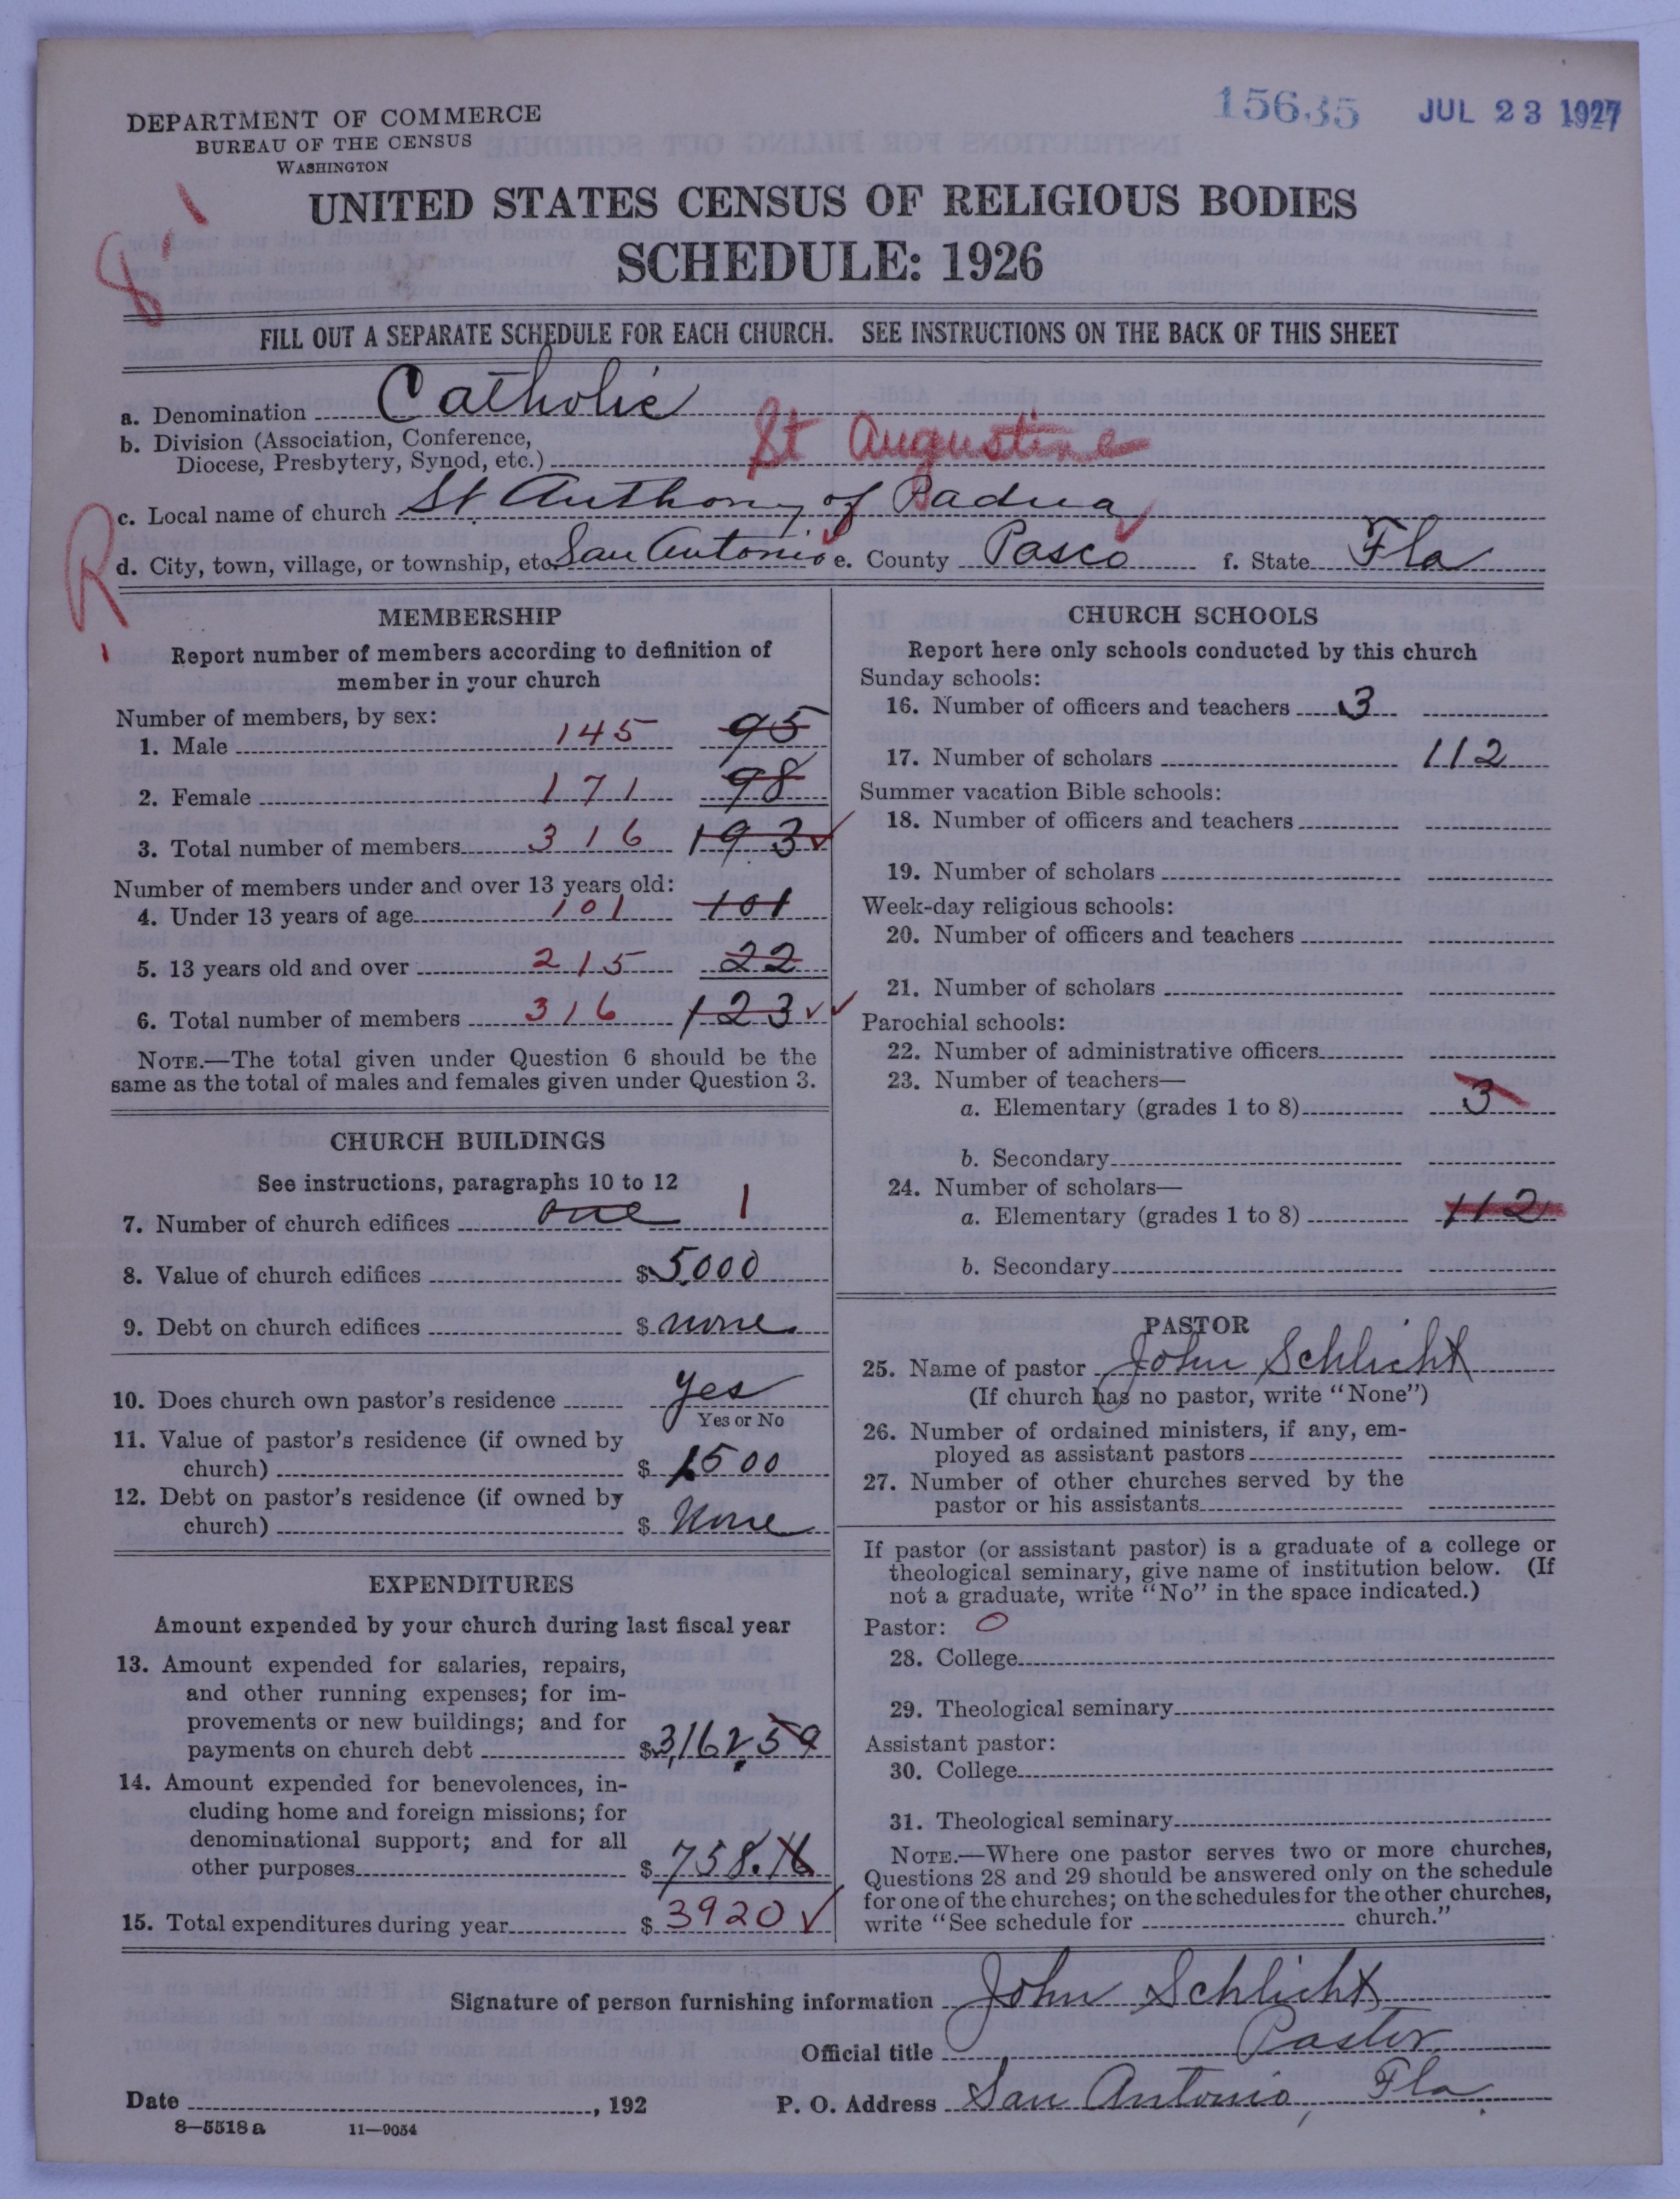 15635 JUL 23 1927
DEPARTMENT OF COMMERCE
BUREAU OF THE CENSUS
WASHINGTON
UNITED STATES CENSUS OF RELIGIOUS BODIES
SCHEDULE: 1926
8
FILL OUT A SEPARATE SCHEDULE FOR EACH CHURCH. SEE INSTRUCTIONS ON THE BACK OF THIS SHEET
a. Denomination Catholic
b. Division (Association, Conference,
Diocese, Presbytery, Synod, etc.) St Augustine
c. Local name of church St Anthony of Padua
R
d. City, town, village, or township, etc. San Antonio e. County Pasco f. State Fla
MEMBERSHIP
Report number of members according to definition of
member in your church
Number of members, by sex:
1. Male 145 95
2. Female 171 98
3. Total number of members 316 193
Number of members under and over 13 years old:
4. Under 13 years of age 101 101
5. 13 years old and over 215 22
6. Total number of members 316 123
NOTE.—The total given under Question 6 should be the
same as the total of males and females given under Question 3.
CHURCH BUILDINGS
See instructions, paragraphs 10 to 12
7. Number of church edifices one 1
8. Value of church edifices $ 5,000
9. Debt on church edifices $ none
10. Does church own pastor's residence yes
Yes or No
11. Value of pastor's residence (if owned by
church) $ 1500
12. Debt on pastor's residence (if owned by
church) $ None
EXPENDITURES
Amount expended by your church during last fiscal year
13. Amount expended for salaries, repairs,
and other running expenses; for im-
provements or new buildings; and for
payments on church debt $ 3,162.59
14. Amount expended for benevolences, in-
cluding home and foreign missions; for
denominational support; and for all
other purposes $ 758.16
15. Total expenditures during year $ 3920
CHURCH SCHOOLS
Report here only schools conducted by this church
Sunday schools:
16. Number of officers and teachers 3
17. Number of scholars 112
Summer vacation Bible schools:
18. Number of officers and teachers
19. Number of scholars
Week-day religious schools:
20. Number of officers and teachers
21. Number of scholars
Parochial schools:
22. Number of administrative officers
23. Number of teachers—
a. Elementary (grades 1 to 8) 3
b. Secondary
24. Number of scholars—
a. Elementary (grades 1 to 8) 112
b. Secondary
PASTOR
25. Name of pastor John Schlicht
(If church has no pastor, write "None")
26. Number of ordained ministers, if any, em-
ployed as assistant pastors
27. Number of other churches served by the
pastor or his assistants
If pastor (or assistant pastor) is a graduate of a college or
theological seminary, give name of institution below. (If
not a graduate, write "No" in the space indicated.)
Pastor: 0
28. College
29. Theological seminary
Assistant pastor:
30. College
31. Theological seminary
NOTE.—Where one pastor serves two or more churches,
Questions 28 and 29 should be answered only on the schedule
for one of the churches; on the schedules for the other churches,
write "See schedule for church."
Signature of person furnishing information John Schlicht
Official title Pastor
Date , 192 P. O. Address San Antonio, Fla.
8—5518 a 11—9054